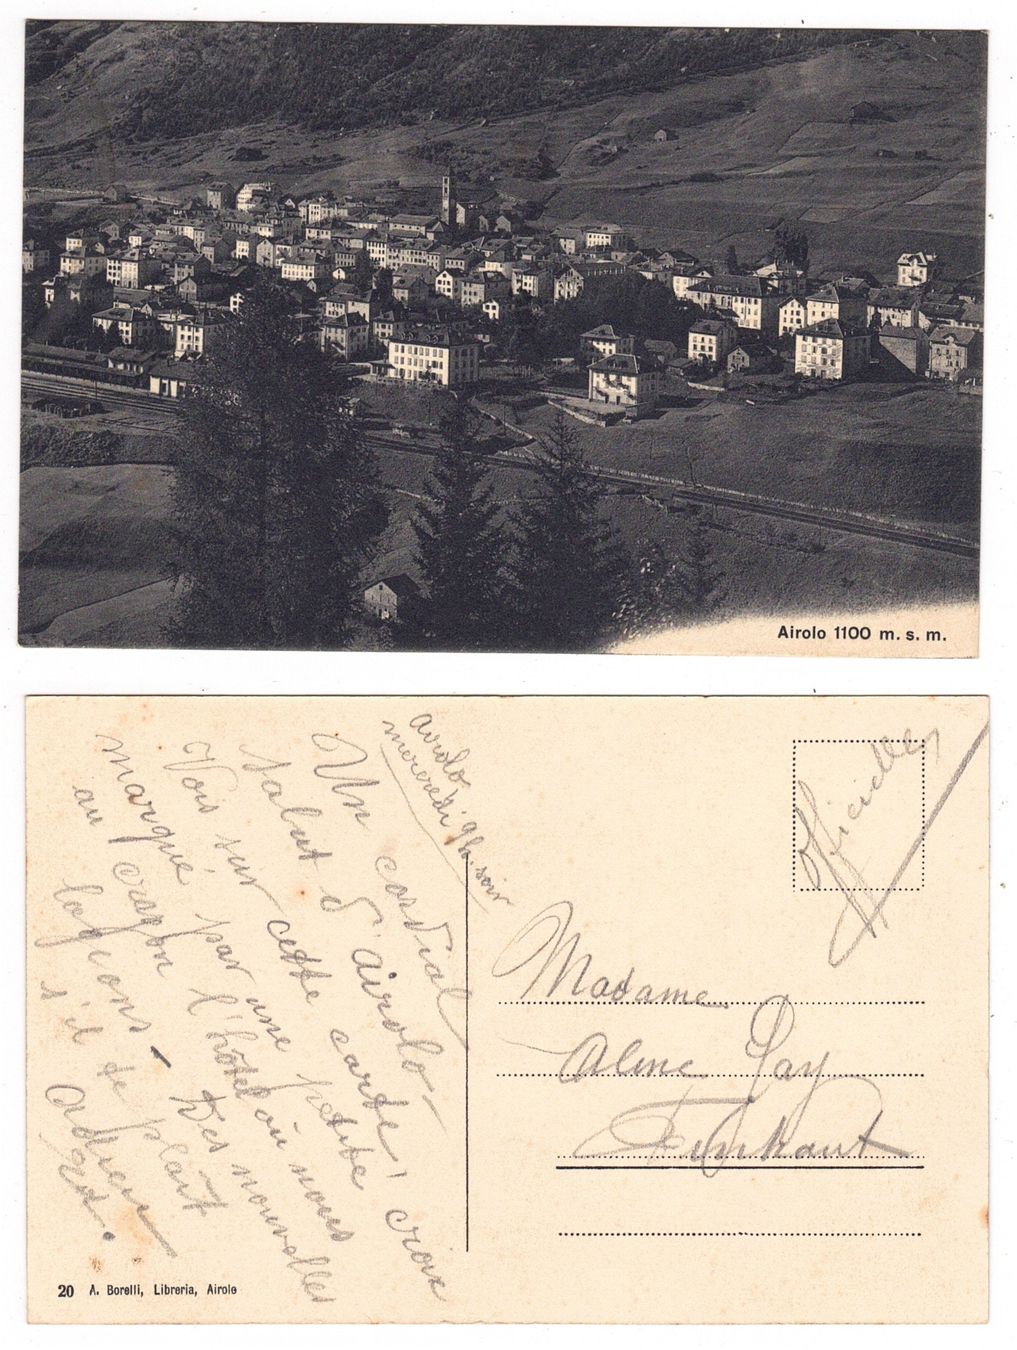 Airolo 1100 m. s. m.
Airolo
mercredi 9h. soir
Un cordial
salut d'Airolo –
Vois sur cette carte, croix
marqué par une petite
au crayon l'hôtel où nous
logeons – Des nouvelles
s'il te plaît
Adrien
Officielle
Madame
Aline Gay
Finhaut
20 A. Borelli, Libreria, Airolo